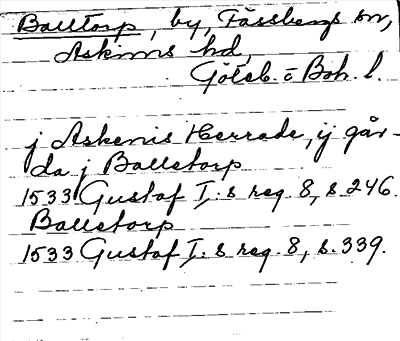 Balltorp, by, Fässbergs sn,
Askims hd,
Göteb. o Boh. l.
j Askenis Herrade, ij går-
da j Balletorp
1533 Gustaf I:s reg. 8, s. 246.
Balletorp
1533 Gustaf I:s reg. 8, s. 339.